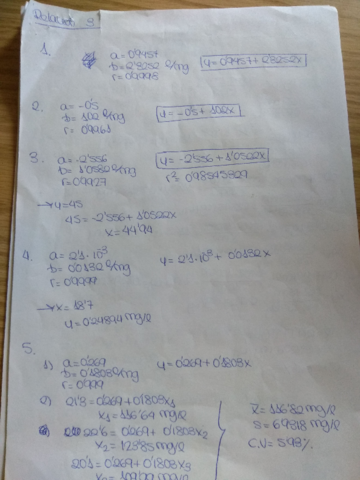 1.
a = 0'9457
b = 2'8252 l/mg
r = 0'9998
y = 0'9457 + 2'8252x
2.
a = -0'5
b = 102 l/mg
r = 0'9961
y = -0'5 + 102x
3.
a = -2'556
b = 1'0582 l/mg
r = 0'9927
y = -2'556 + 1'0522x
r² = 0'98545829
→ y = 45
45 = -2'556 + 1'0522x
x = 44'94
4.
a = 2'1·10³
b = 0'0132 l/mg
r = 0'9999
y = 2'1·10³ + 0'0132x
→ x = 18'7
y = 0'24894 mg/l
5.
1) a = 0'269
b = 0'1808 l/mg
r = 0'999
y = 0'269 + 0'1808x
2) 21'8 = 0'269 + 0'1808x₁
x₁ = 116'69 mg/l
22'6 = 0'269 + 0'1808x₂
x₂ = 123'85 mg/l
20'1 = 0'269 + 0'1808x₃
x̄ = 116'82 mg/l
S = 6'9318 mg/l
C.V = 5'93%